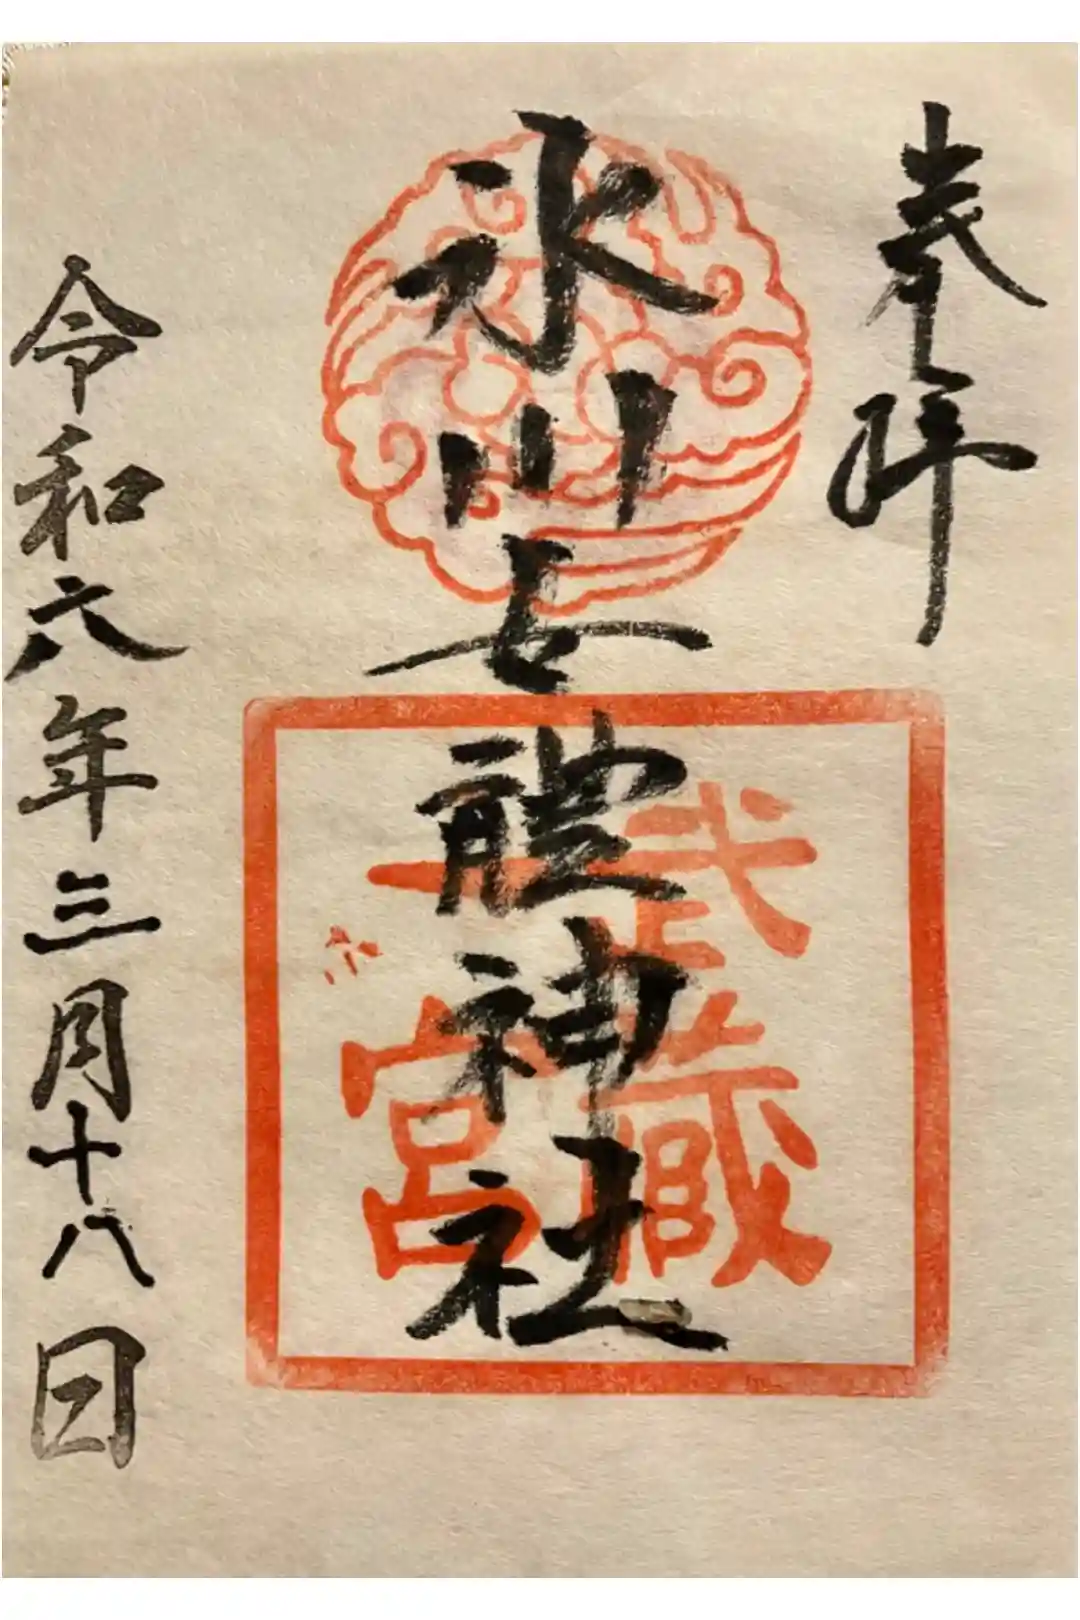 奉拝
氷川女體神社
武藏
一宮
令和六年三月十八日